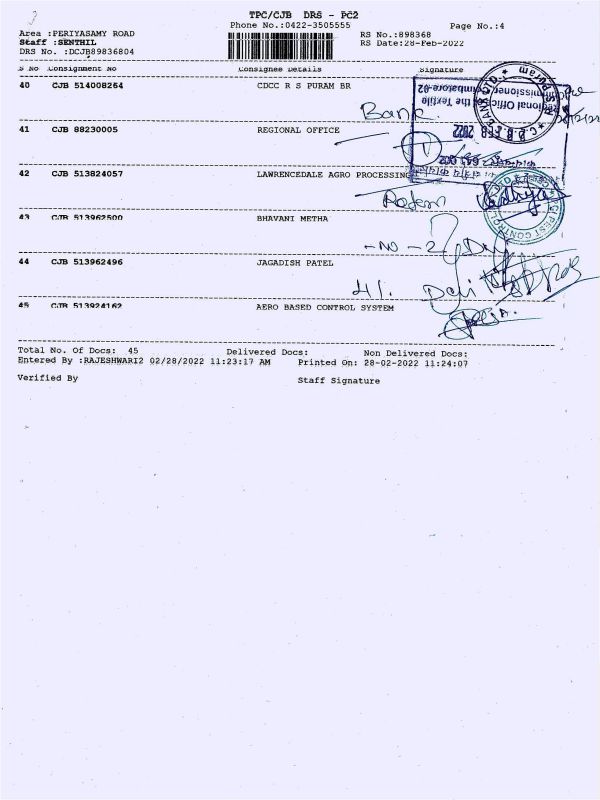 TPC/CJB DRS - PC2
Phone No.:0422-3505555
Page No.:4
Area :PERIYASAMY ROAD
RS No.:898368
Staff :SENTHIL
RS Date:28-Feb-2022
DRS No. :DCJB89836804
S No Consignment No Consignee Details Signature
40 CJB 514008264 CDCC R S PURAM BR
Bank.
41 CJB 88230005 REGIONAL OFFICE
Regional Office of the Textile Commissioner, Coimbatore-02
28 FEB 2022
42 CJB 513824057 LAWRENCEDALE AGRO PROCESSING
43 CJB 513962500 BHAVANI METHA
PEST CONTROL
- NO - 2
44 CJB 513962496 JAGADISH PATEL
45 CJB 513924162 AERO BASED CONTROL SYSTEM
Total No. Of Docs: 45 Delivered Docs: Non Delivered Docs:
Entered By :RAJESHWARI2 02/28/2022 11:23:17 AM Printed On: 28-02-2022 11:24:07
Verified By Staff Signature